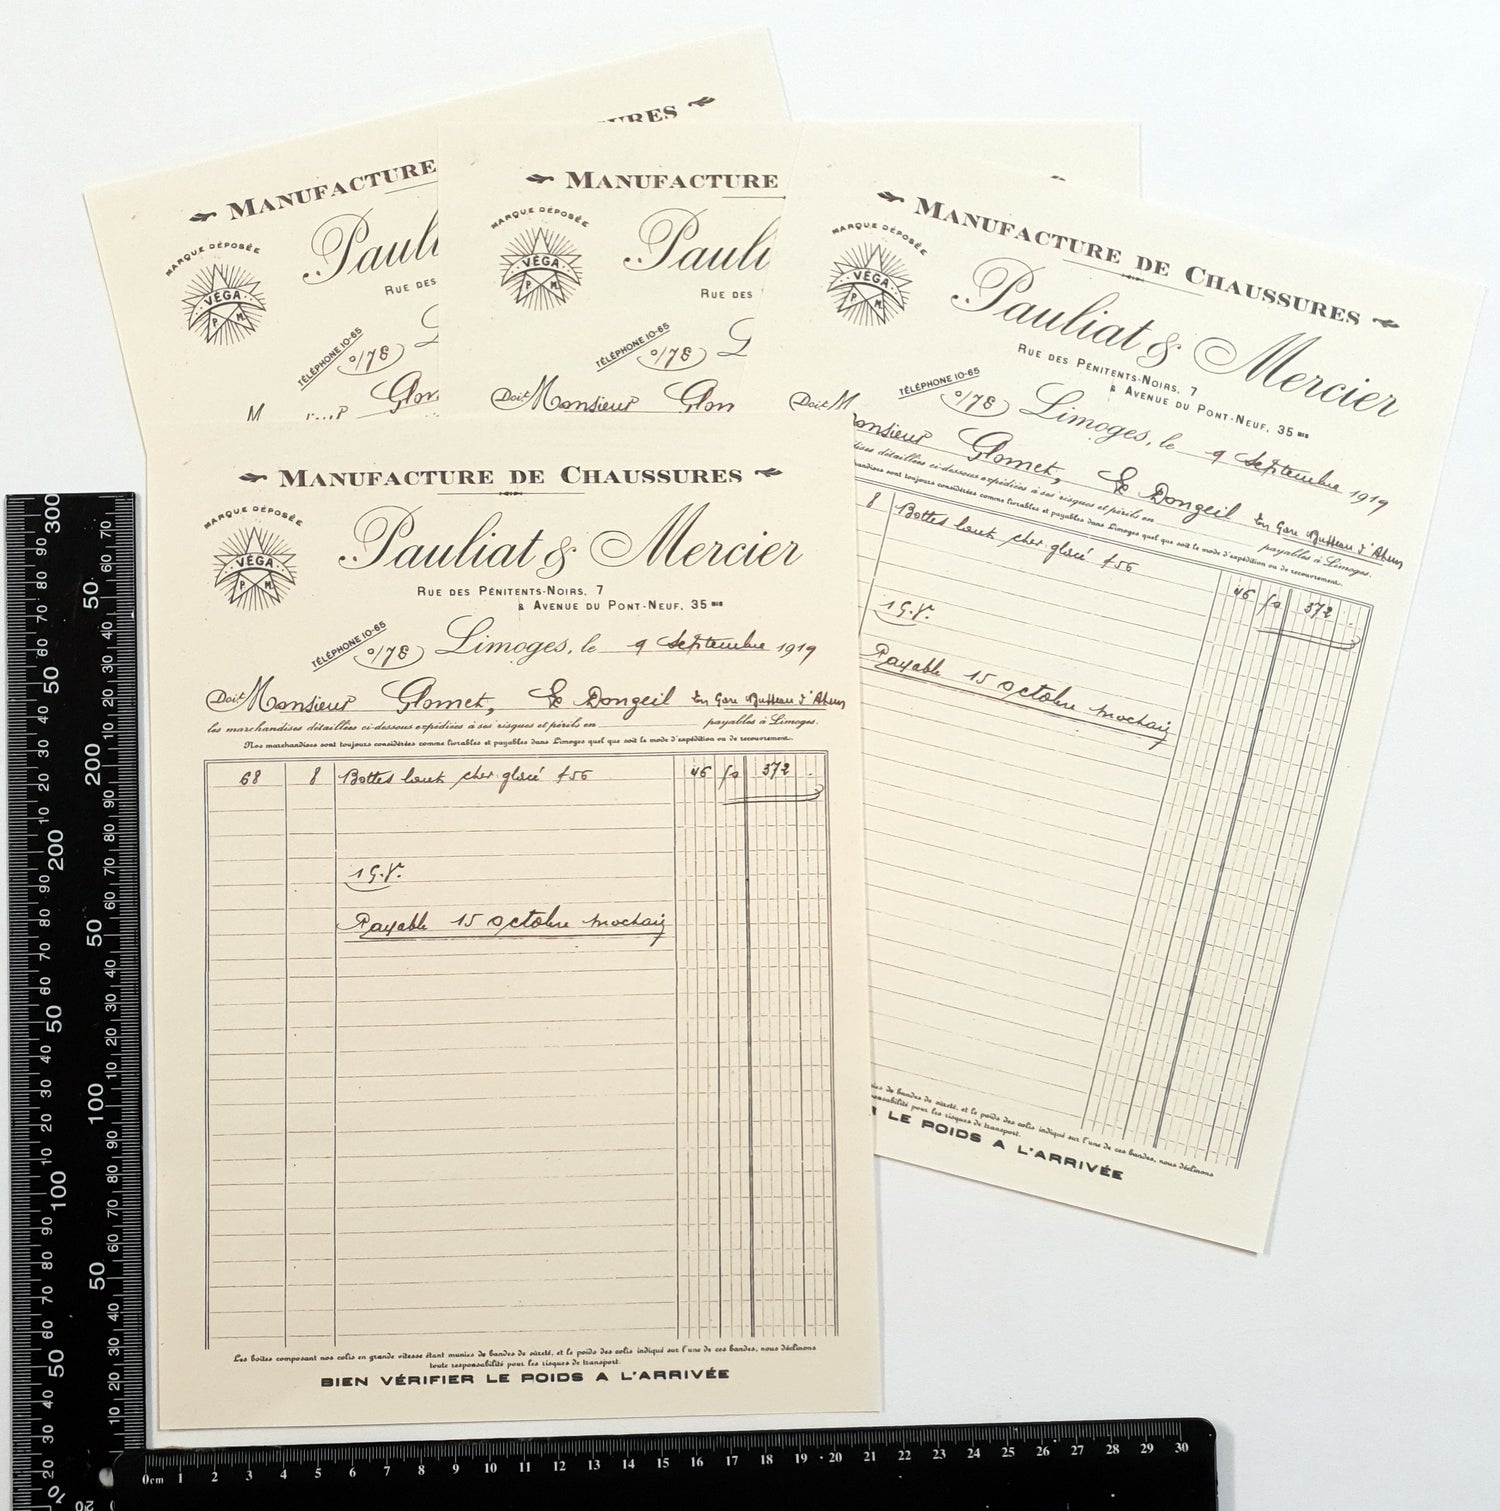 URES
MANUFACTURE
MARQUE DÉPOSÉE
VÉGA
P M
Pauli
RUE DES
TÉLÉPHONE 10-65
0/78
L
M
Glom
MANUFACTURE
MARQUE DÉPOSÉE
VÉGA
P M
Pauli
RUE DES
TÉLÉPHONE 10-65
0/78
L
Doit Monsieur Glom
MANUFACTURE DE CHAUSSURES
MARQUE DÉPOSÉE
VÉGA
P M
Pauliat & Mercier
RUE DES PÉNITENTS-NOIRS, 7
& AVENUE DU PONT-NEUF, 35 BIS
TÉLÉPHONE 10-65
0/78
Limoges, le 9 Septembre 1919
Doit M
onsieur Glomet, Le Dongeil En Gare Busseau d'Ahun
ises détaillées ci-dessous expédiées à ses risques et périls en payables à Limoges.
handises sont toujours considérées comme livrables et payables dans Limoges quel que soit le mode d'expédition ou de recouvrement.
8 Bottes haut chev. glacé 456 46 50 372
1 G.V.
Payable 15 octobre prochain
es de bandes de sûreté, et le poids des colis indiqué sur l'une de ces bandes, nous déclinons
ponsabilité pour les risques de transport.
LE POIDS A L'ARRIVÉE
MANUFACTURE DE CHAUSSURES
MARQUE DÉPOSÉE
VÉGA
P M
Pauliat & Mercier
RUE DES PÉNITENTS-NOIRS, 7
& AVENUE DU PONT-NEUF, 35 BIS
TÉLÉPHONE 10-65
0/78
Limoges, le 9 Septembre 1919
Doit Monsieur Glomet, Le Dongeil En Gare Busseau d'Ahun
les marchandises détaillées ci-dessous expédiées à ses risques et périls en payables à Limoges.
Nos marchandises sont toujours considérées comme livrables et payables dans Limoges quel que soit le mode d'expédition ou de recouvrement.
68 8 Bottes haut chev. glacé 456 46 50 372
1 G.V.
Payable 15 octobre prochain
Les boîtes composant nos colis en grande vitesse étant munies de bandes de sûreté, et le poids des colis indiqué sur l'une de ces bandes, nous déclinons
toute responsabilité pour les risques de transport.
BIEN VÉRIFIER LE POIDS A L'ARRIVÉE
0cm 1 2 3 4 5 6 7 8 9 10 11 12 13 14 15 16 17 18 19 20 21 22 23 24 25 26 27 28 29 30